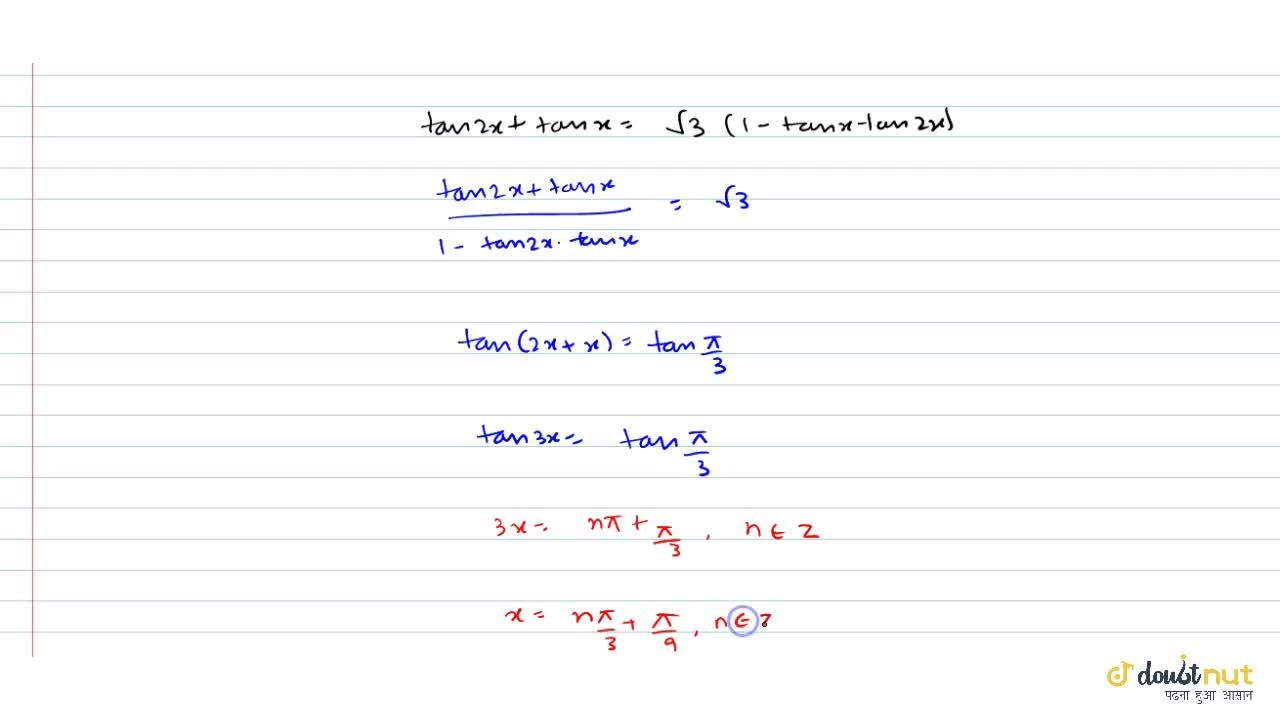 tan2x + tanx = √3 (1 - tanx tan2x)
tan2x + tanx
1 - tan2x · tanx
= √3
tan(2x + x) = tan π/3
tan3x = tan π/3
3x = nπ + π/3 , n ∈ Z
x = nπ/3 + π/9 , n ∈ Z
doubtnut
पढना हुआ आसान